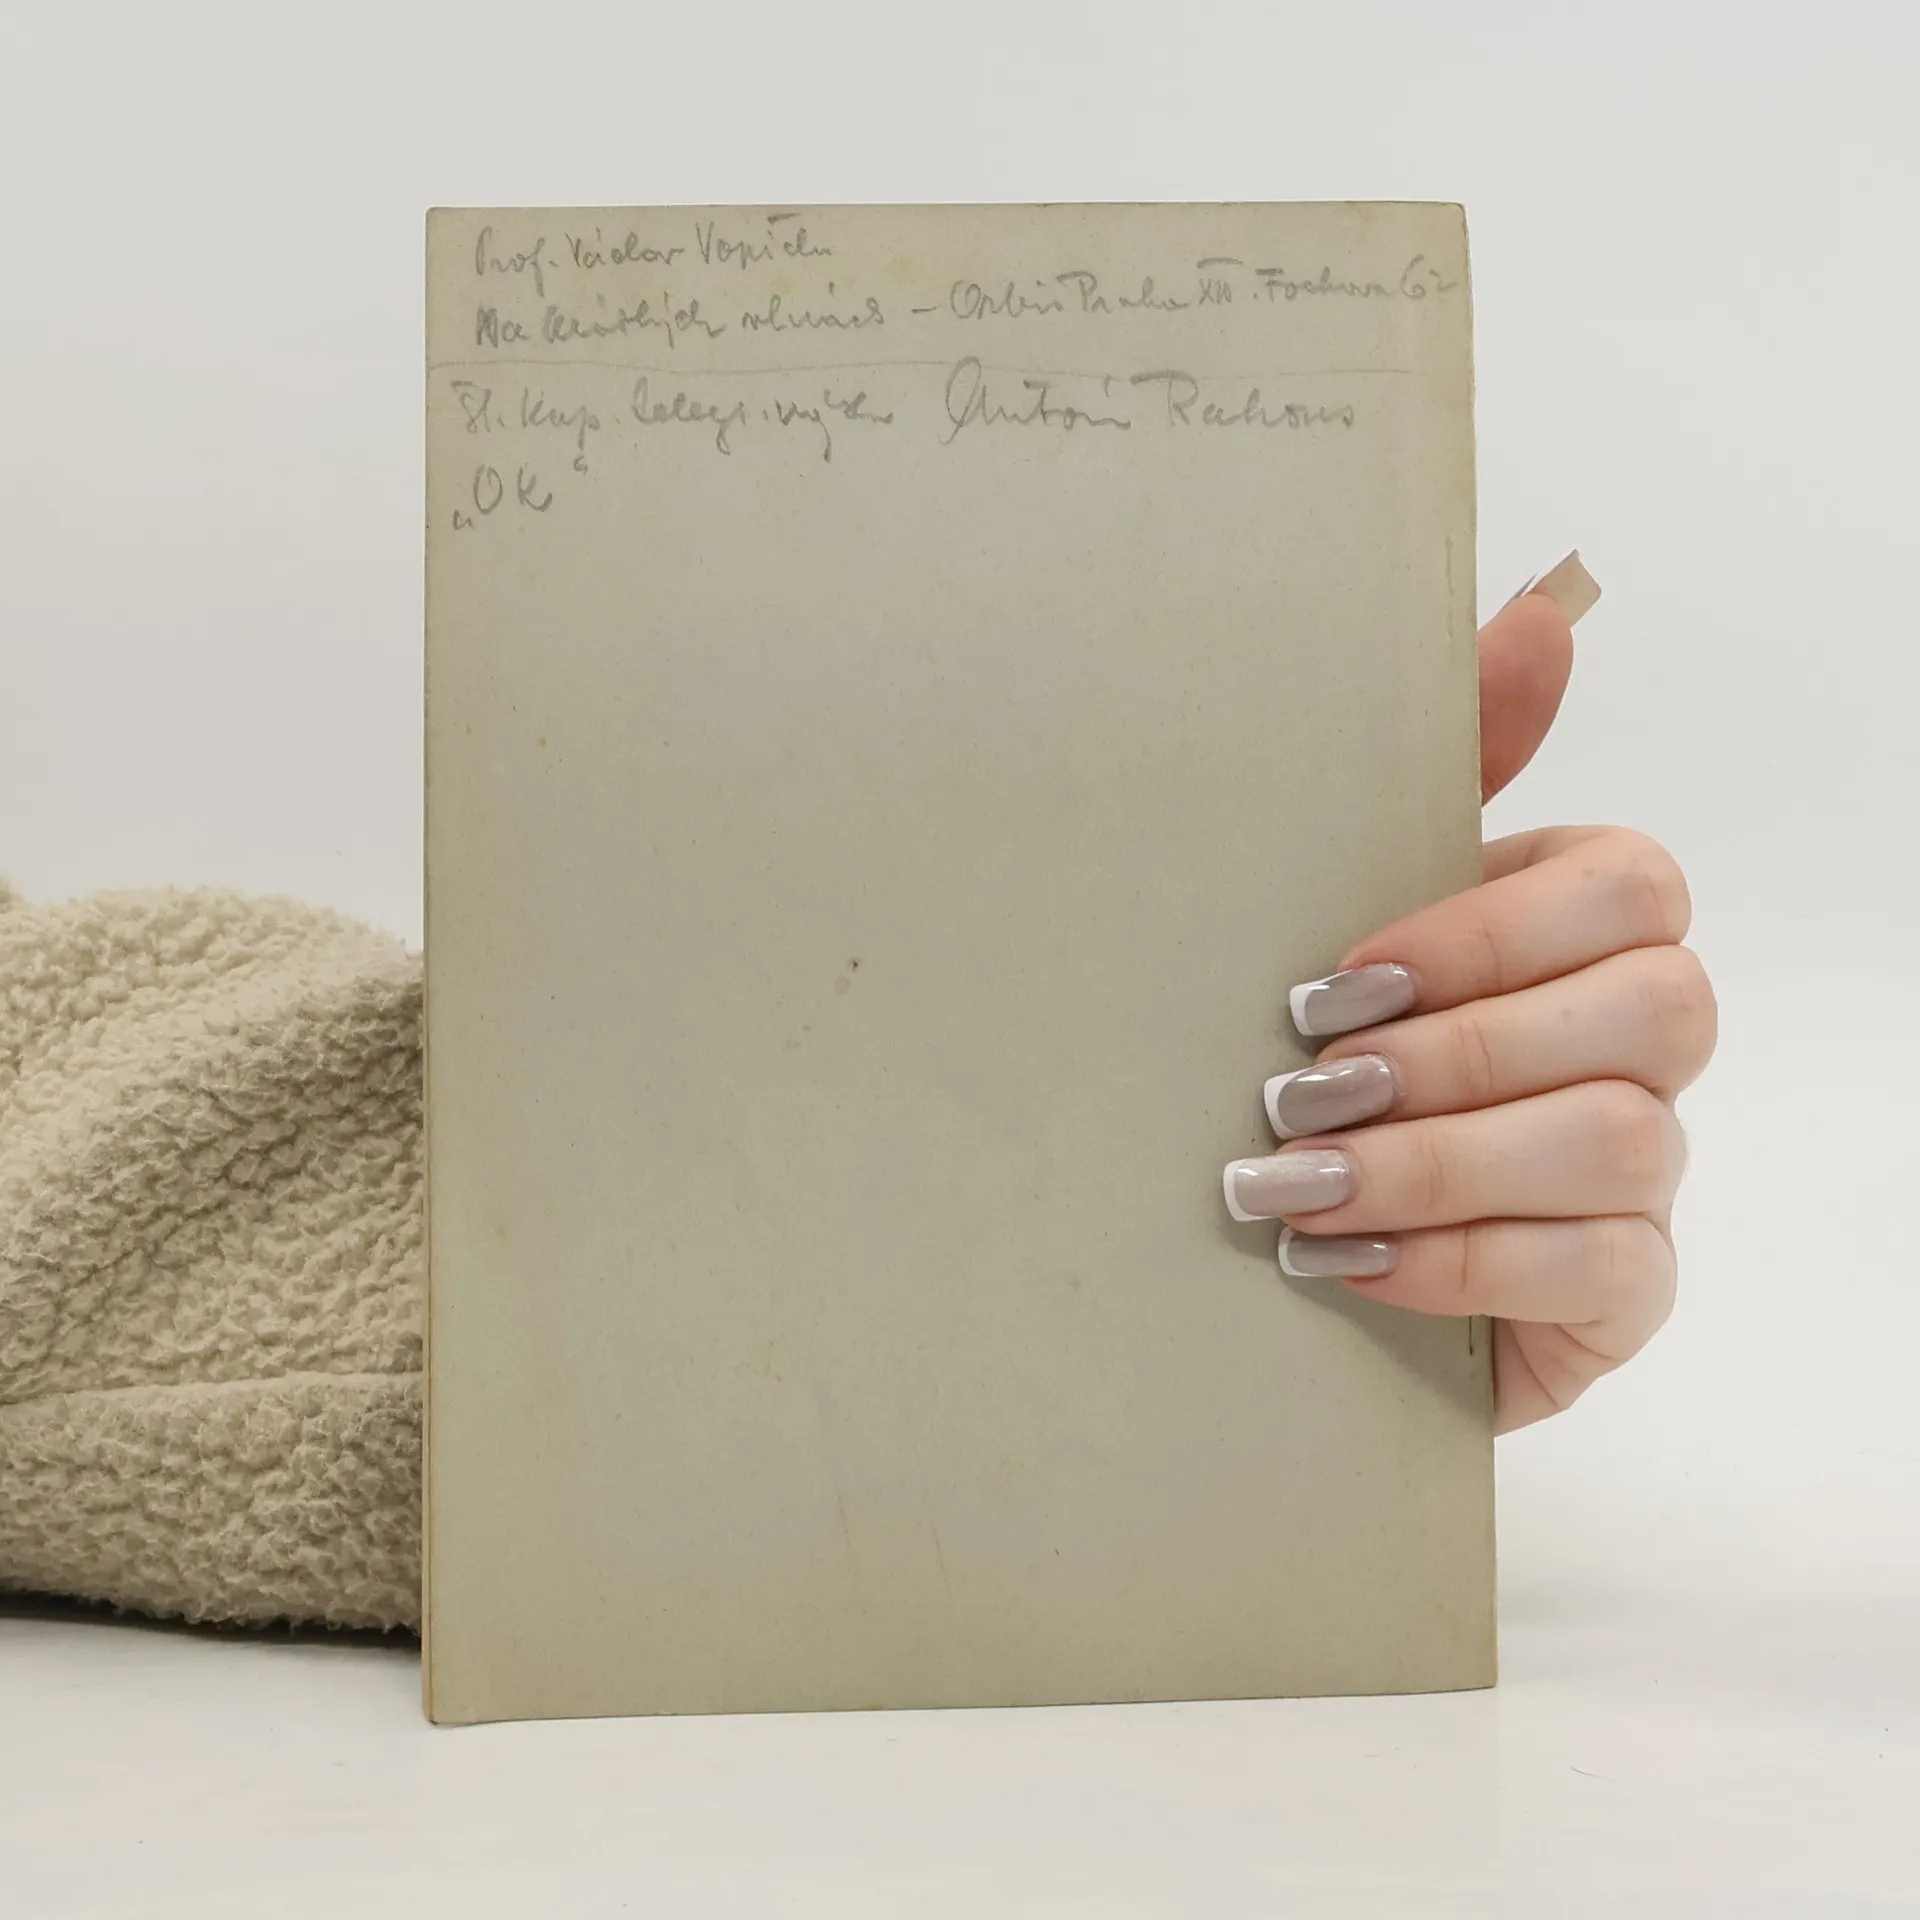 Prof. Václav Vopička
Na krátkých vlnách – Orbis Praha XII. Fochova 62
Št. kap. telegr. Antonín Rakous
„OK“